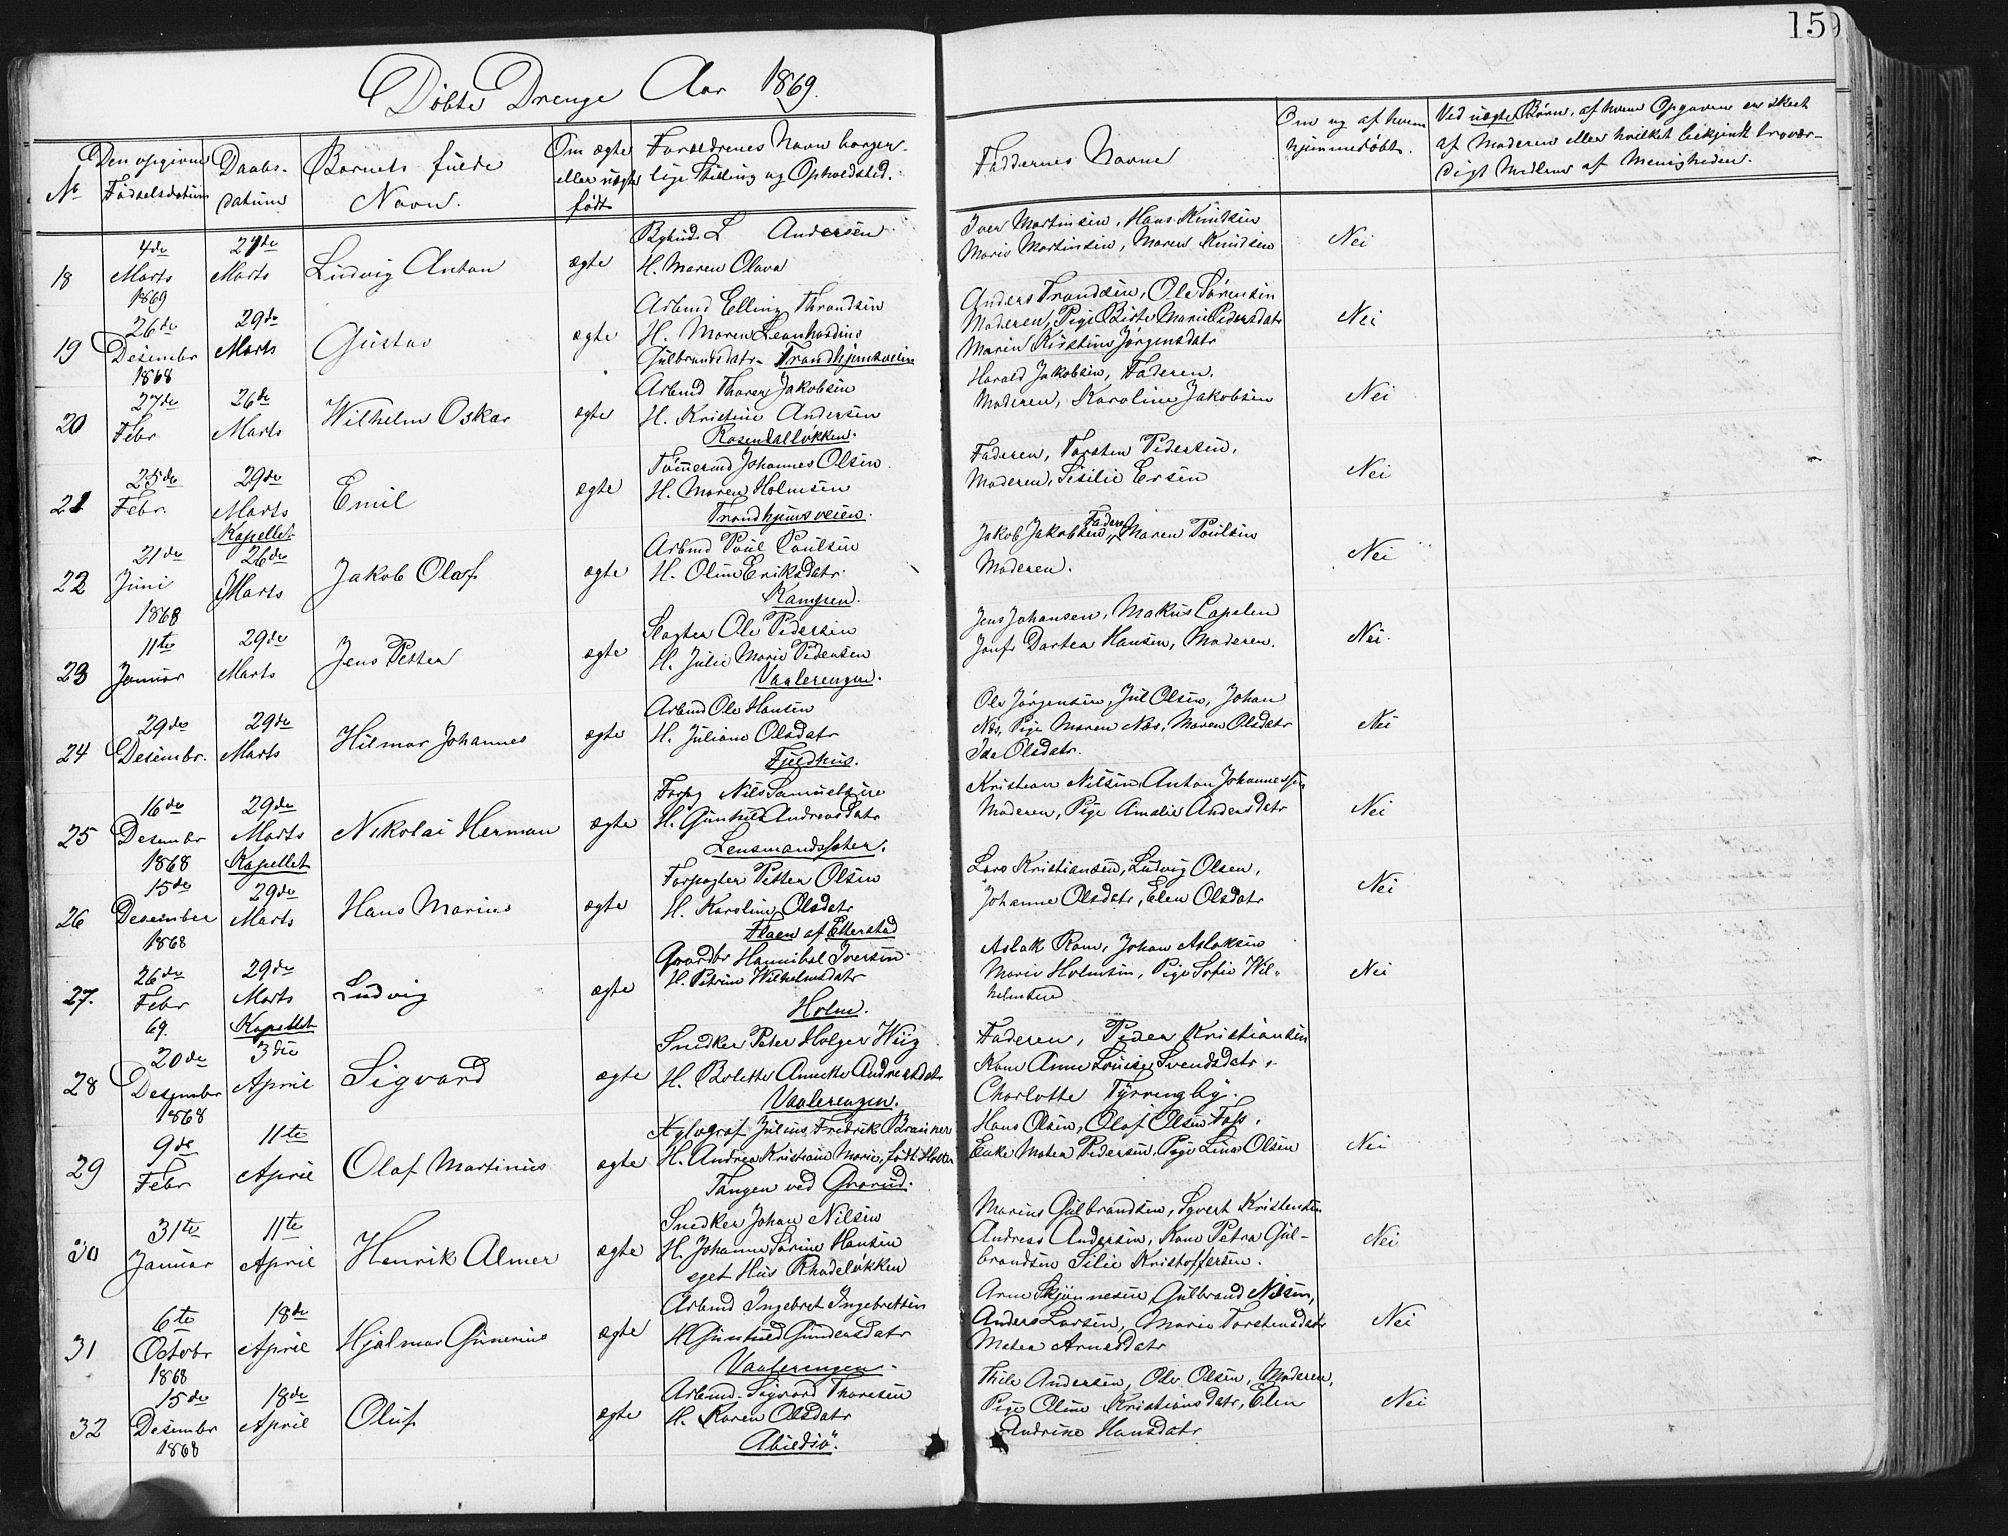 159
Døbte Drenge Aar 1869.
No
Den opgivne Fødselsdatum
Daabs-datum
Barnets fulde Navn.
Om ægte eller uægte født
Forældrenes Navn borger-lige Stilling og Opholdsted.
Faddernes Navne
Om og af hvem hjemmedøbt.
Ved uægte Børn, af hvem Opgaven er skeet
af Moderen eller hvilket bekjendt trovær-
digt Medlem af Menigheden.
18
4de Marts 1869
27de Marts
Ludvig Anton
ægte
L Andersen
H. Maren Olava
Iver Martinsen, Hans Knudsen
Marie Martinsen, Maren Knudsen
Nei
19
26de Desembr 1868
29de Marts
Gustav
ægte
Arbmd Elling Throndsen
H. Maren Leonhardine
Gulbrandsdatr. Trondhjemsveien
Anders Trondsen, Ole Sørensen
Moderen, Pige Birte Marie Pedersdatr
Maren Kirstine Jørgensdatr
Nei
20
27de Febr
26de Marts
Wilhelm Oskar
ægte
Arbmd Thorer Jakobsen
H. Kristine Andersen
Rosendalløkken.
Harald Jakobsen, Faderen.
Moderen, Karoline Jakobsen
Nei
21
25de Febr.
29de Marts
Kapellet
Emil
ægte
Tømermd Johannes Olsen
H. Maren Holmsen
Trondhjemsveien.
Faderen, Torsten Pedersen,
Moderen, Sisilie Ersen
Nei
22
21de Juni 1868
26de Marts
Jakob Olaf
ægte
Arbmd Paul Paulsen
H. Oline Eriksdatr.
Kampen.
Jakob Jakobsen, Faderen, Maren Poulsen
Moderen.
Nei
23
11te Januar
29de Marts
Jens Petter
ægte
Slagter Ole Pedersen
H. Julie Marie Pedersen
Vaalerengen.
Jens Johansen, Makus Capelen
Jonfr Dortea Hansen, Moderen.
Nei.
24
29de Desembr.
29de Marts
Hilmar Johannes
ægte
Arbmd Ole Hansen
H. Juliane Olsdatr
Fjeldhus.
Ole Jørgensen, Jul Olsen, Johan
Næs, Pige Maren Næs, Maren Olsdatr
Ida Olsdatr.
Nei
25
16de Desembr 1868
29de Marts
Kapellet
Nikolai Herman
ægte
Forpg Nils Samuelsen
H. Gunhild Andreasdatr
Lensmandsseter.
Kristian Nilsen, Anton Johannessen
Moderen, Pige Amalie Andersdatr
Nei
26
15de Desember 1868
29de Marts
Hans Marius
ægte
Forpagter Petter Olsen
H. Karoline Olsdatr
Flaen af Etterstad
Lars Kristiansen, Ludvig Olsen,
Johanne Olsdatr, Elen Olsdatr
Nei
27.
26de Febr 69.
29de Marts
Kapellet
Ludvig
ægte
Gaardbr Hannibal Iversen
H. Petrine Wilhelmsdatr
Holm.
Aslak Ram, Johan Aslaksen
Marie Holmsen, Pige Sofie Wil-
helmsen
Nei
28
20de Desember 1868
3die April
Sigvard
ægte
Snedker Peter Holger Wiig
H. Bolette Annette Andreasdatr
Vaalerengen.
Faderen, Peder Kristiansen
Kone Anne Louise Svendsdatr.
Charlotte Tyrringby.
29
9de Febr
11te April
Olaf Martinius
ægte
Xylograf Julius Fredrik Brauner
H. Andrea Kristiane Marie, født Holter
Tangen ved Grorud.
Hans Olsen, Olaf Olsen Foss,
Enke Matea Pedersen, Pige Lina Olsen
Nei
30
31te Januar
11te April
Henrik Almer
ægte
Snedker Johan Nilsen
H. Johanne Sørine Hansen
eget Hus Rhodeløkken
Marius Gulbrandsen, Syvert Kristensen
Andreas Andersen, Kone Petra Gul-
brandsen Silie Kristoffersen.
Nei
31
6te Octobr 1868
18de April
Hjalmar Gunerius
ægte
Arbmd Ingebret Ingebretsen
H Gunhild Gundersdatr
Vaalerengen.
Arne Skjønnesen, Gulbrand Nilsen,
Anders Larsen, Marie Torstensdatr
Matea Arnesdatr
Nei
32
15de Desembr 1868
18de April
Oluf
ægte
Arbmd. Sigvard Thoresen
H. Karen Olsdatr
Abildsø.
Thile Andersen, Ole Olsen, Moderen,
Pige Oline Kristiansdatr, Elen
Andrine Hansdatr
Nei